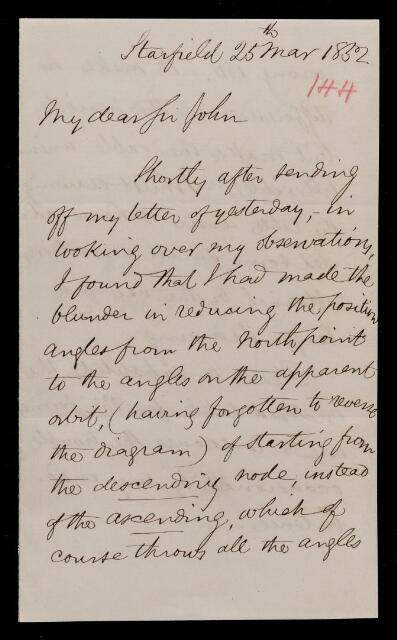 Starfield 25th Mar 1852
144
My dear Sir John
Shortly after sending
off my letter of yesterday, - in
looking over my observations,
I found that I had made the
blunder in reducing the position
angles from the North point
to the angles on the apparent
orbit, (having forgotten to reverse
the diagram) of starting from
the descending node, instead
of the ascending, which of
course throws all the angles